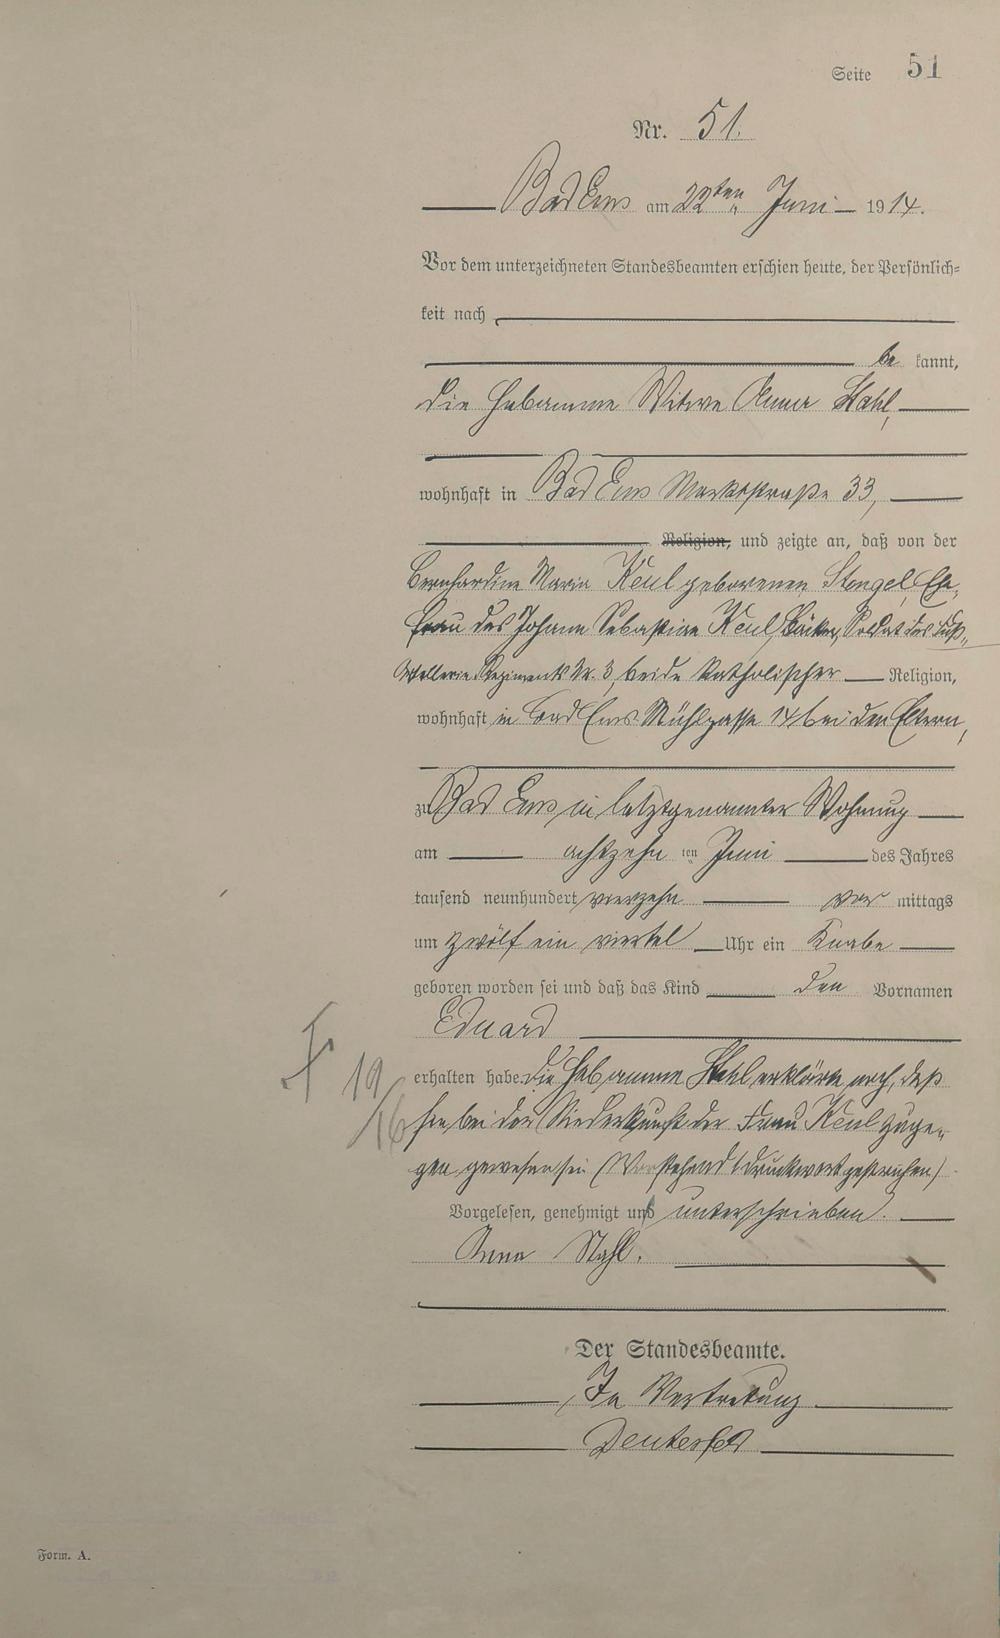 Seite 51
Nr. 51.
Bad Ems am 22ten Juni 1914.
Vor dem unterzeichneten Standesbeamten erschien heute, der Persönlich=
keit nach
be kannt,
die Hebamme Witwe Anna Stahl,
wohnhaft in Bad Ems Marktstraße 33,
Religion, und zeigte an, daß von der
Bernhardine Maria Keul geborenen Stengel, Ehe-
frau des Johann Sebastian Keul, Bäcker, Soldat des Fuß-
Artellerie Regiments Nr. 3, beide katholischer Religion,
wohnhaft in Bad Ems Mühlgasse 14 bei den Eltern,
zu Bad Ems in letztgenannter Wohnung
am achtzehn ten Juni des Jahres
tausend neunhundert vierzehn vor mittags
um zwölf ein viertel Uhr ein Knabe
geboren worden sei und daß das Kind den Vornamen
Eduard
erhalten habe. Die Hebamme Stahl erklärte noch, daß
sie bei der Niederkunft der Frau Keul zuge-
gen gewesen sei (Vorstehend 1 Druckwort gestrichen)
Vorgelesen, genehmigt und unterschrieben.
Anna Stahl.
Der Standesbeamte.
In Vertretung
19/16
Form. A.